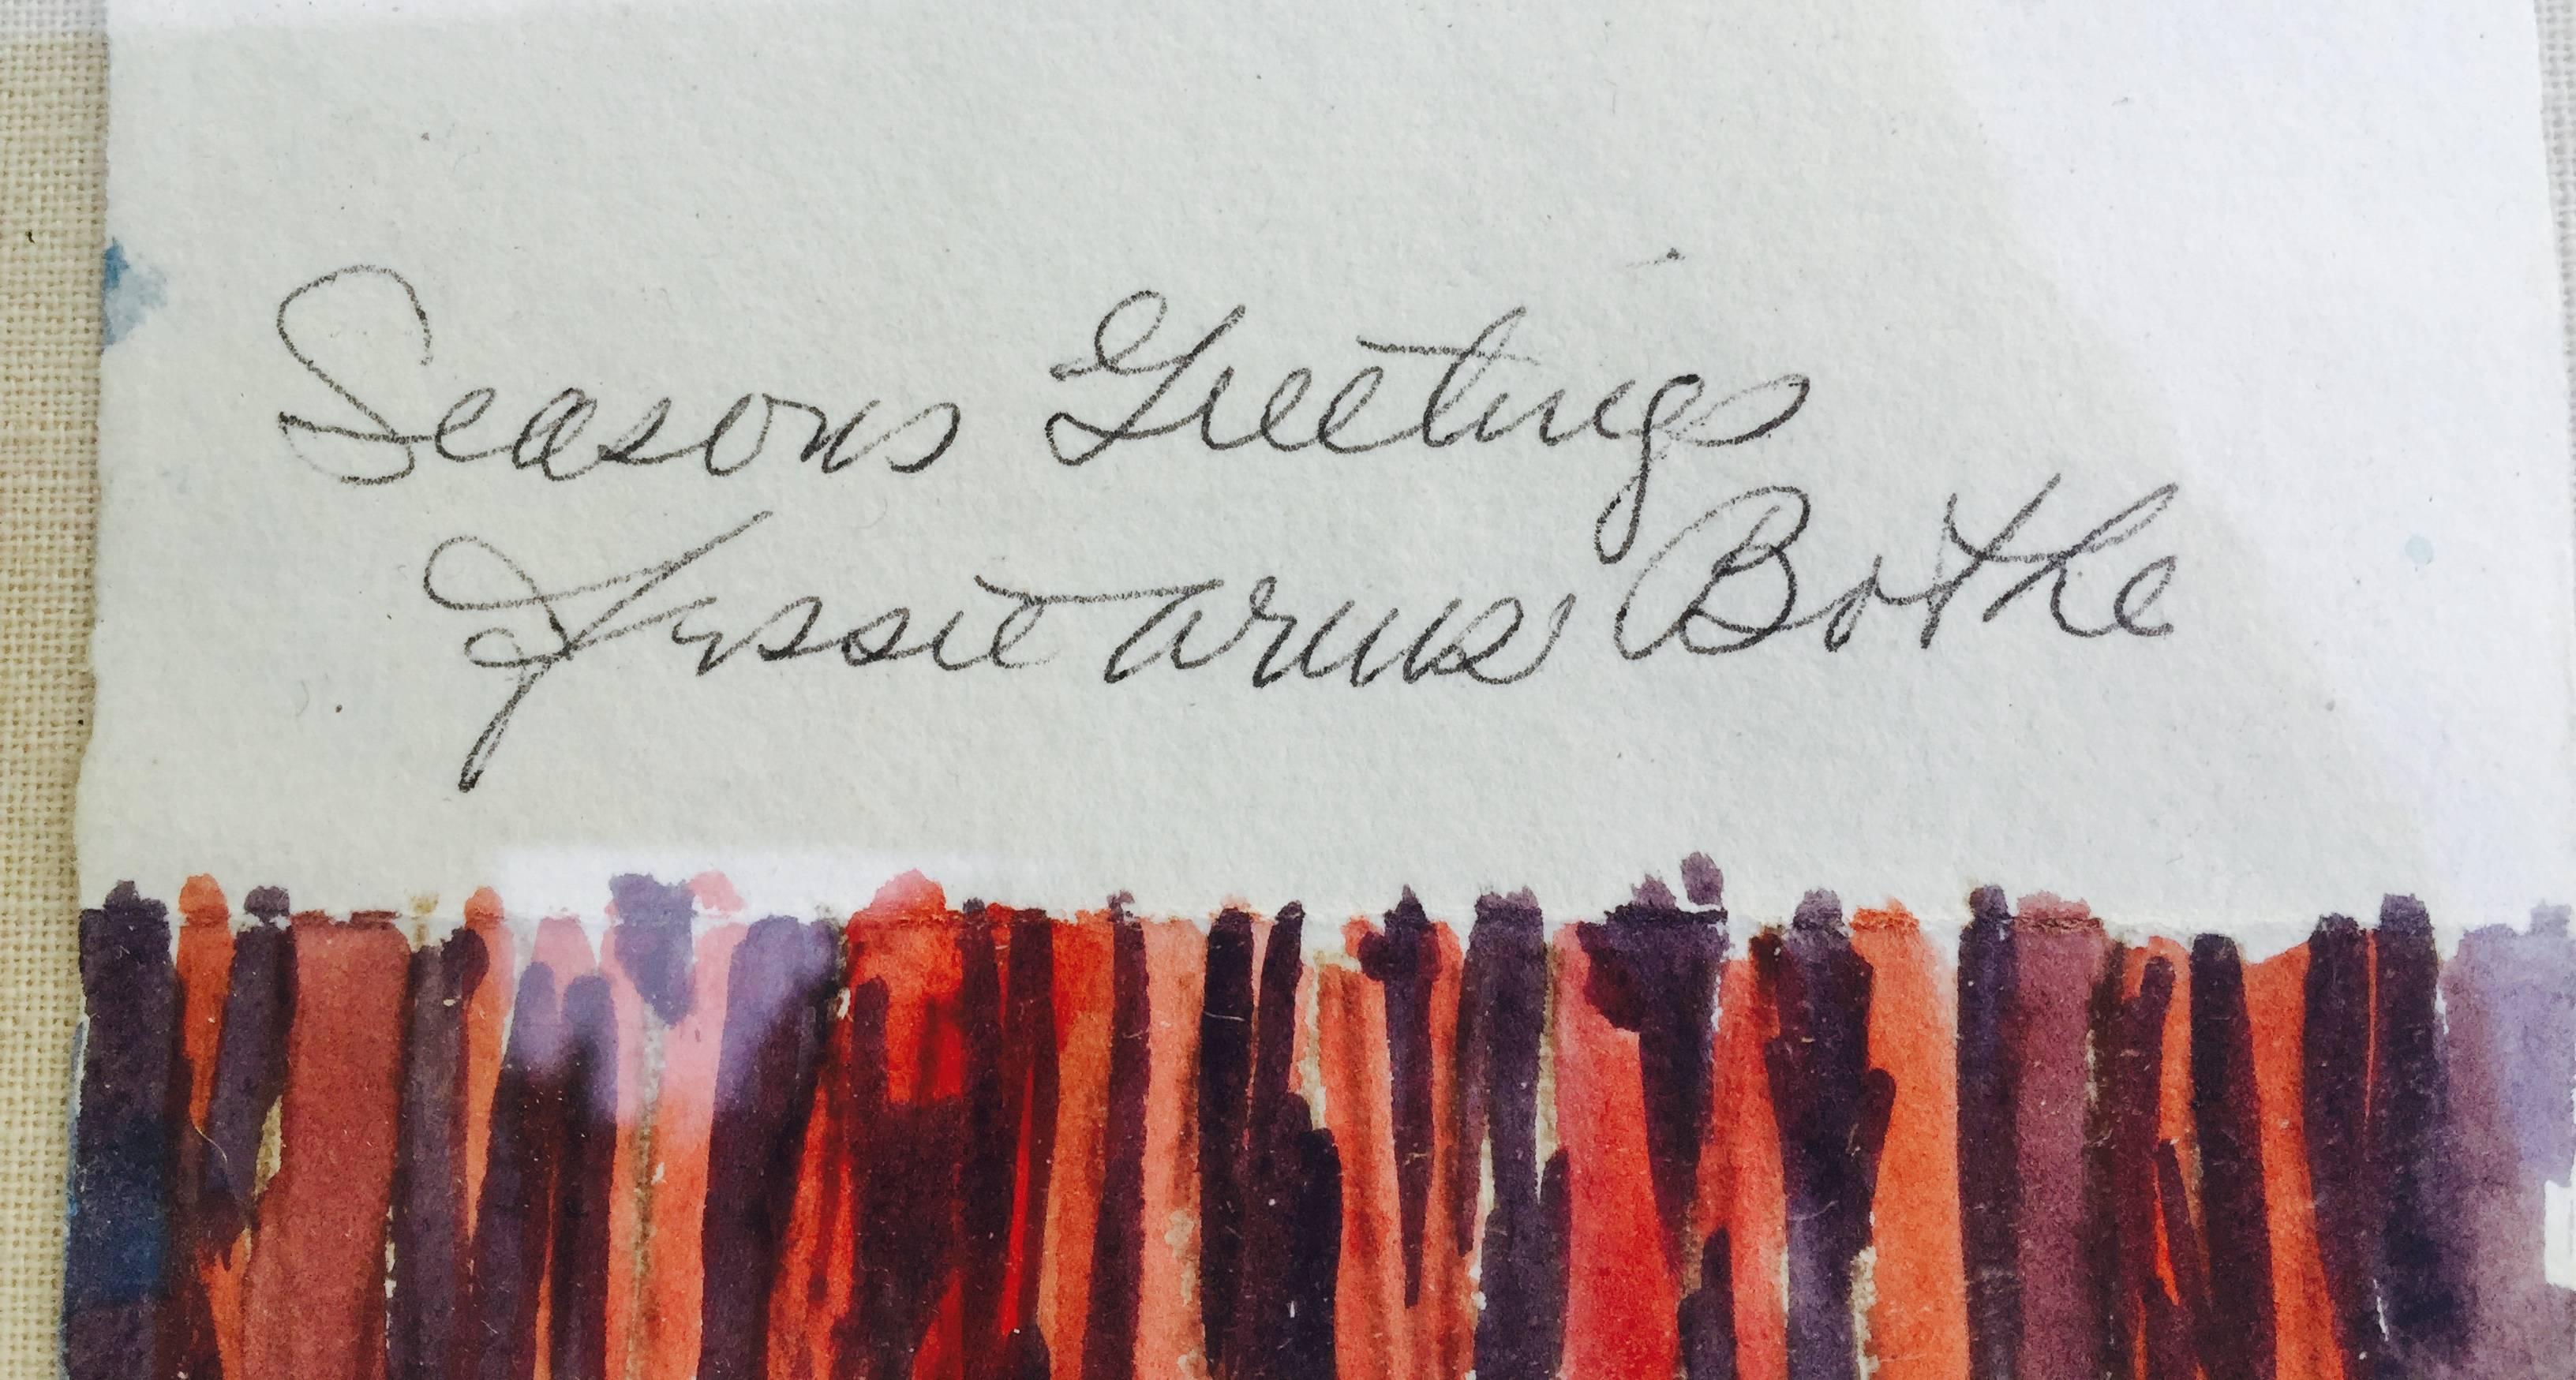 Seasons Greetings
Jessie Arms Botke